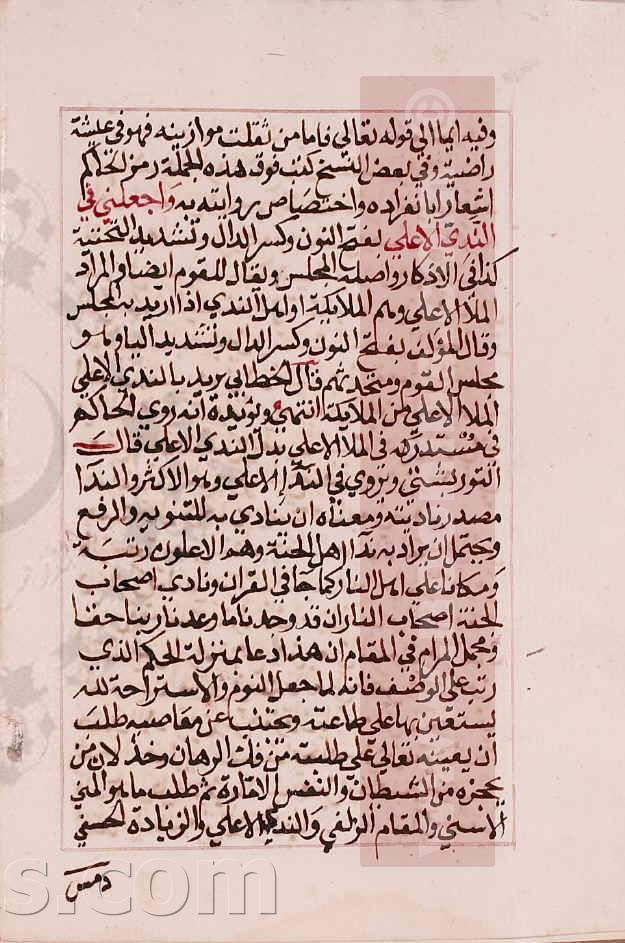 وفيه ايما الي قوله تعالي فاما من ثقلت موازينه فهو في عيشة
راضية وفي بعض النسخ كتب فوق هذه الجملة رمز الحاكم
اشعارا بانفراده واختصاص روايته به واجعلني في
الندي الاعلي بفتح النون وكسر الدال وتشديد التحتية
كذا في الاذكار واصله المجلس ويقال للقوم ايضا والمراد
الملا الاعلي وهم الملايكة اواهل الندي اذا اريد به المجلس
وقال المؤلف بفتح النون وكسر الدال وتشديد اليا وهو
مجلس القوم ومتحدثهم قال الخطابي يريد بالندي الاعلي
الملا الاعلي من الملايكة انتهي ويؤيده انه روي الحاكم
في مستدركه في الملا الاعلي بدل الندي الاعلي قال
التوربشتي ويروي في الندا الاعلي وهو الاكثر والندا
مصدر ناديته ومعناه ان ينادي به للتنويه والرفع
ويحتمل ان يراد به ندا اهل الجنة وهم الاعلون رتبة
ومكانا علي اهل النار كما جا في القران ونادي اصحاب
الجنة اصحاب النار ان قد وجدنا ما وعدنا ربنا حقا
ومجمل المرام في المقام ان هذا دعا بمنزلة الحكم الذي
رتب علي الوصف فانه لما جعل النوم والاستراحة لله
يستعين بها علي طاعته ويجتنب عن معاصيه طلب
ان يعينه تعالي علي طلبته من فك الرهان وخذلان من
يحجزه من الشيطان والنفس الامارة ثم طلب ما هو المني
الاسني والمقام الزلفي والندي الاعلي والزيادة الحسني
دمس
s.com